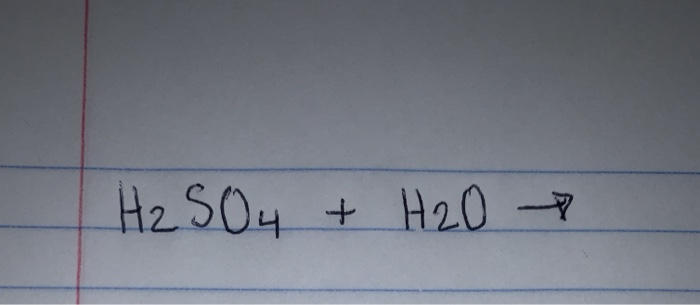 H2SO4 + H2O →